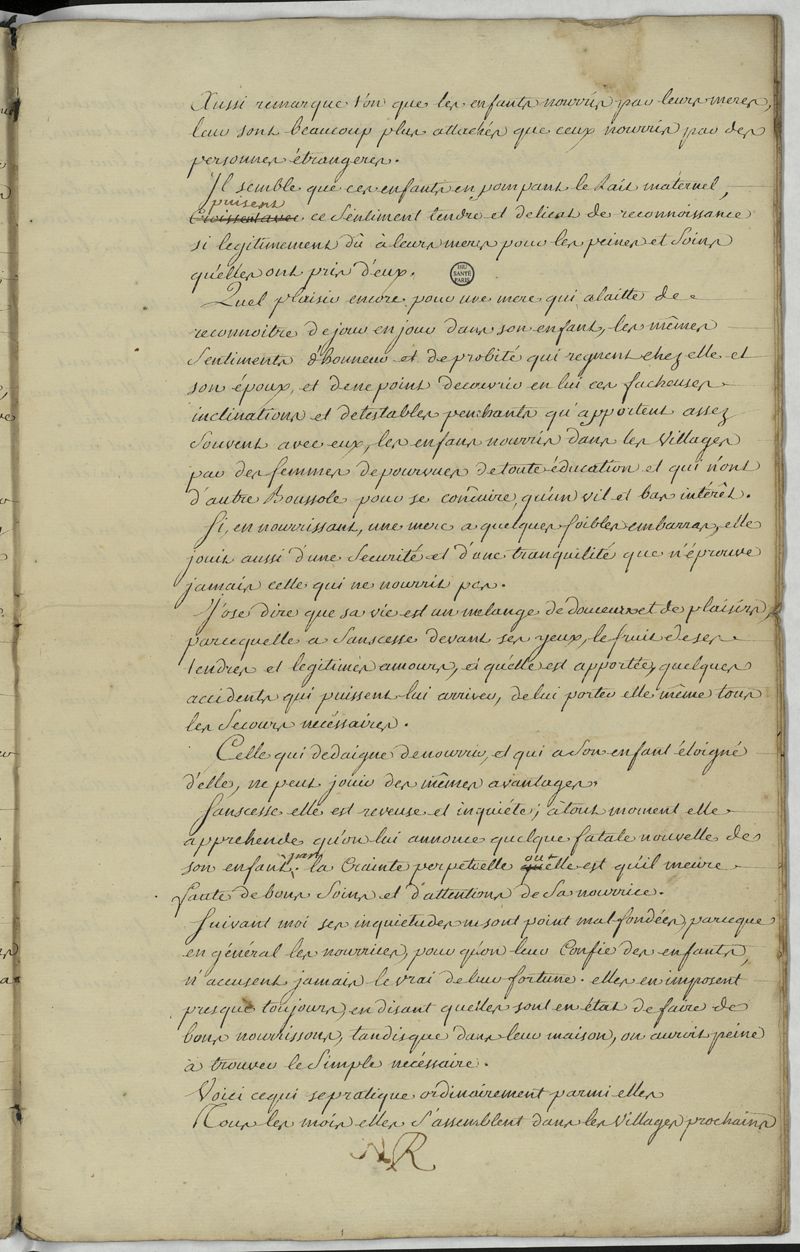 Aussi remarque t'on que les enfants nourris par leurs meres,
leur sont beaucoup plus attachés que ceux nourris par des
personnes étrangeres.
Il semble que ces enfants en pompant le Lait maternel,
puisent
Croissent avec ce Sentiment tendre et delicat de reconnoissance
si legitimement dû à leurs meres pour les peines et Soins
qu'elles ont pris d'eux.
BIU
SANTÉ
PARIS
Quel plaisir encore pour une mere qui alaitte de
reconnoitre de jour en jour dans son enfant, les mêmes
Sentiments d'honneur et de probité qui regnent chez elle et
son époux, et de ne point decouvrir en lui ces facheuses
inclinations et detestables penchants qu'apportent assez
Souvent avec eux, les enfans nourris dans les Villages
par des femmes depourvues de toute éducation et qui n'ont
d'autre Boussole pour se conduire, qu'un vil et bas intérêt.
Si, en nourrissant, une mere a quelques foibles embarras, elle
jouit aussi d'une Securité et d'une tranquilité que n'éprouve
jamais celle qui ne nourrit pas.
J'ose dire que sa vie est un mélange de douceurs et de plaisirs,
parcequ'elle a Sanscesse devant ses yeux, le fruit de ses
tendres et legitimes amours, et qu'elle est apportée, quelques
accidents qui puissent lui arriver, de lui porter elle même tous
les Secours nécéssaires.
Celle qui dedaigne de nourrir, et qui a Son enfant éloigné
d'elle, ne peut jouir des mêmes avantages,
Sanscesse elle est reveuse et inquiéte; à tout moment elle
apprehende qu'on lui annonce quelque fatale nouvelle de
son enfant. par la Crainte perpetuelle où elle est qu'il meure
faute de bons Soins et d'attentions de Sa nourrice.
Suivant moi ses inquietudes ne sont point mal fondées, parceque
en général les nourrices, pour qu'on leur Confie des enfants,
n'accusent jamais le vrai de leur fortune. elles en imposent
presque toujours, en disant qu'elles sont en état de faire de
bons nourrissons, tandisque dans leur maison, on auroit peine
à trouver le Simple nécéssaire.
Voici cequi se pratique ordinairement parmi elles
Tous les mois elles s'assemblent dans les Villages prochains
NR